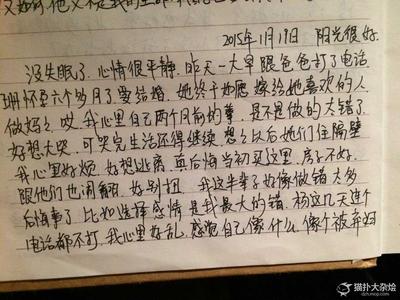 2015年1月17日 阳光很好
没失眠了.心情很平静.昨天一大早跟爸爸打了电话
怀孕六个多月了要结婚.她终于如愿嫁给她喜欢的人
做妈了.哎.我心里自己两个月前的事.是不是做的太错了.
好想大哭.可哭完生活还得继续.想想以后她们住隔壁
我心里好烦.好想逃离.真后悔当初买这里.房子不好.
跟他们也闹翻.好别扭. 我这半辈子好像做错太多
后悔事了.比如选择感情是我最大的错.杨这几天连个
电话都不打.我心里好乱.感觉自己像什么.像个被弃妇
猫扑大杂烩
dzh.mop.com